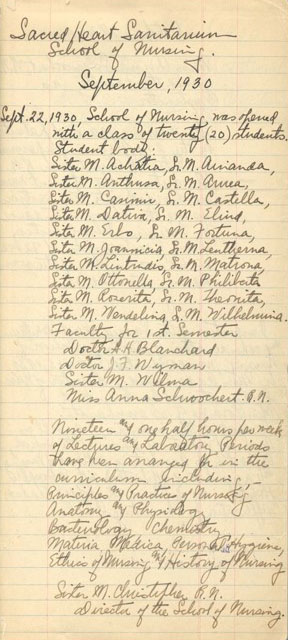 Sacred Heart Sanitarium
School of Nursing.
September, 1930
Sept. 22, 1930, School of Nursing, was opened
with a class of twenty (20) students.
Student body:
Sister M. Achatia, Sr. M. Amanda,
Sister M. Anthusa, Sr. M.
Sister M. Casimir, Sr. M. Castella,
Sister M. Dativa, Sr. M.
Sister M. Erbo, Sr. M. Fortuna,
Sister M. Joannicia, Sr. M.
Sister M. Lintrudis, Sr. M. Matrona,
Sister M. Ottonella, Sr. M. Philiberta
Sister M. Roserita, Sr. M. Theonita,
Sister M. Wendelina, S. M. Wilhelmina.
Faculty for 1st. Semester
Doctor A. H. Blanchard
Doctor J. F. Wyman
Sister M. Wilma
Miss Anna Schwochert. R.N.
Nineteen and one half hours per week
of Lectures and Laboratory Periods
have been arranged for in the
curriculum including,-
Principles and Practices of Nursing
Anatomy and Physiology
Bacteriology Chemistry
Materia Medica, Personal Hygiene,
Ethics of Nursing and History of Nursing
Sister M. Christopher R.N.
Director of the School of Nursing.